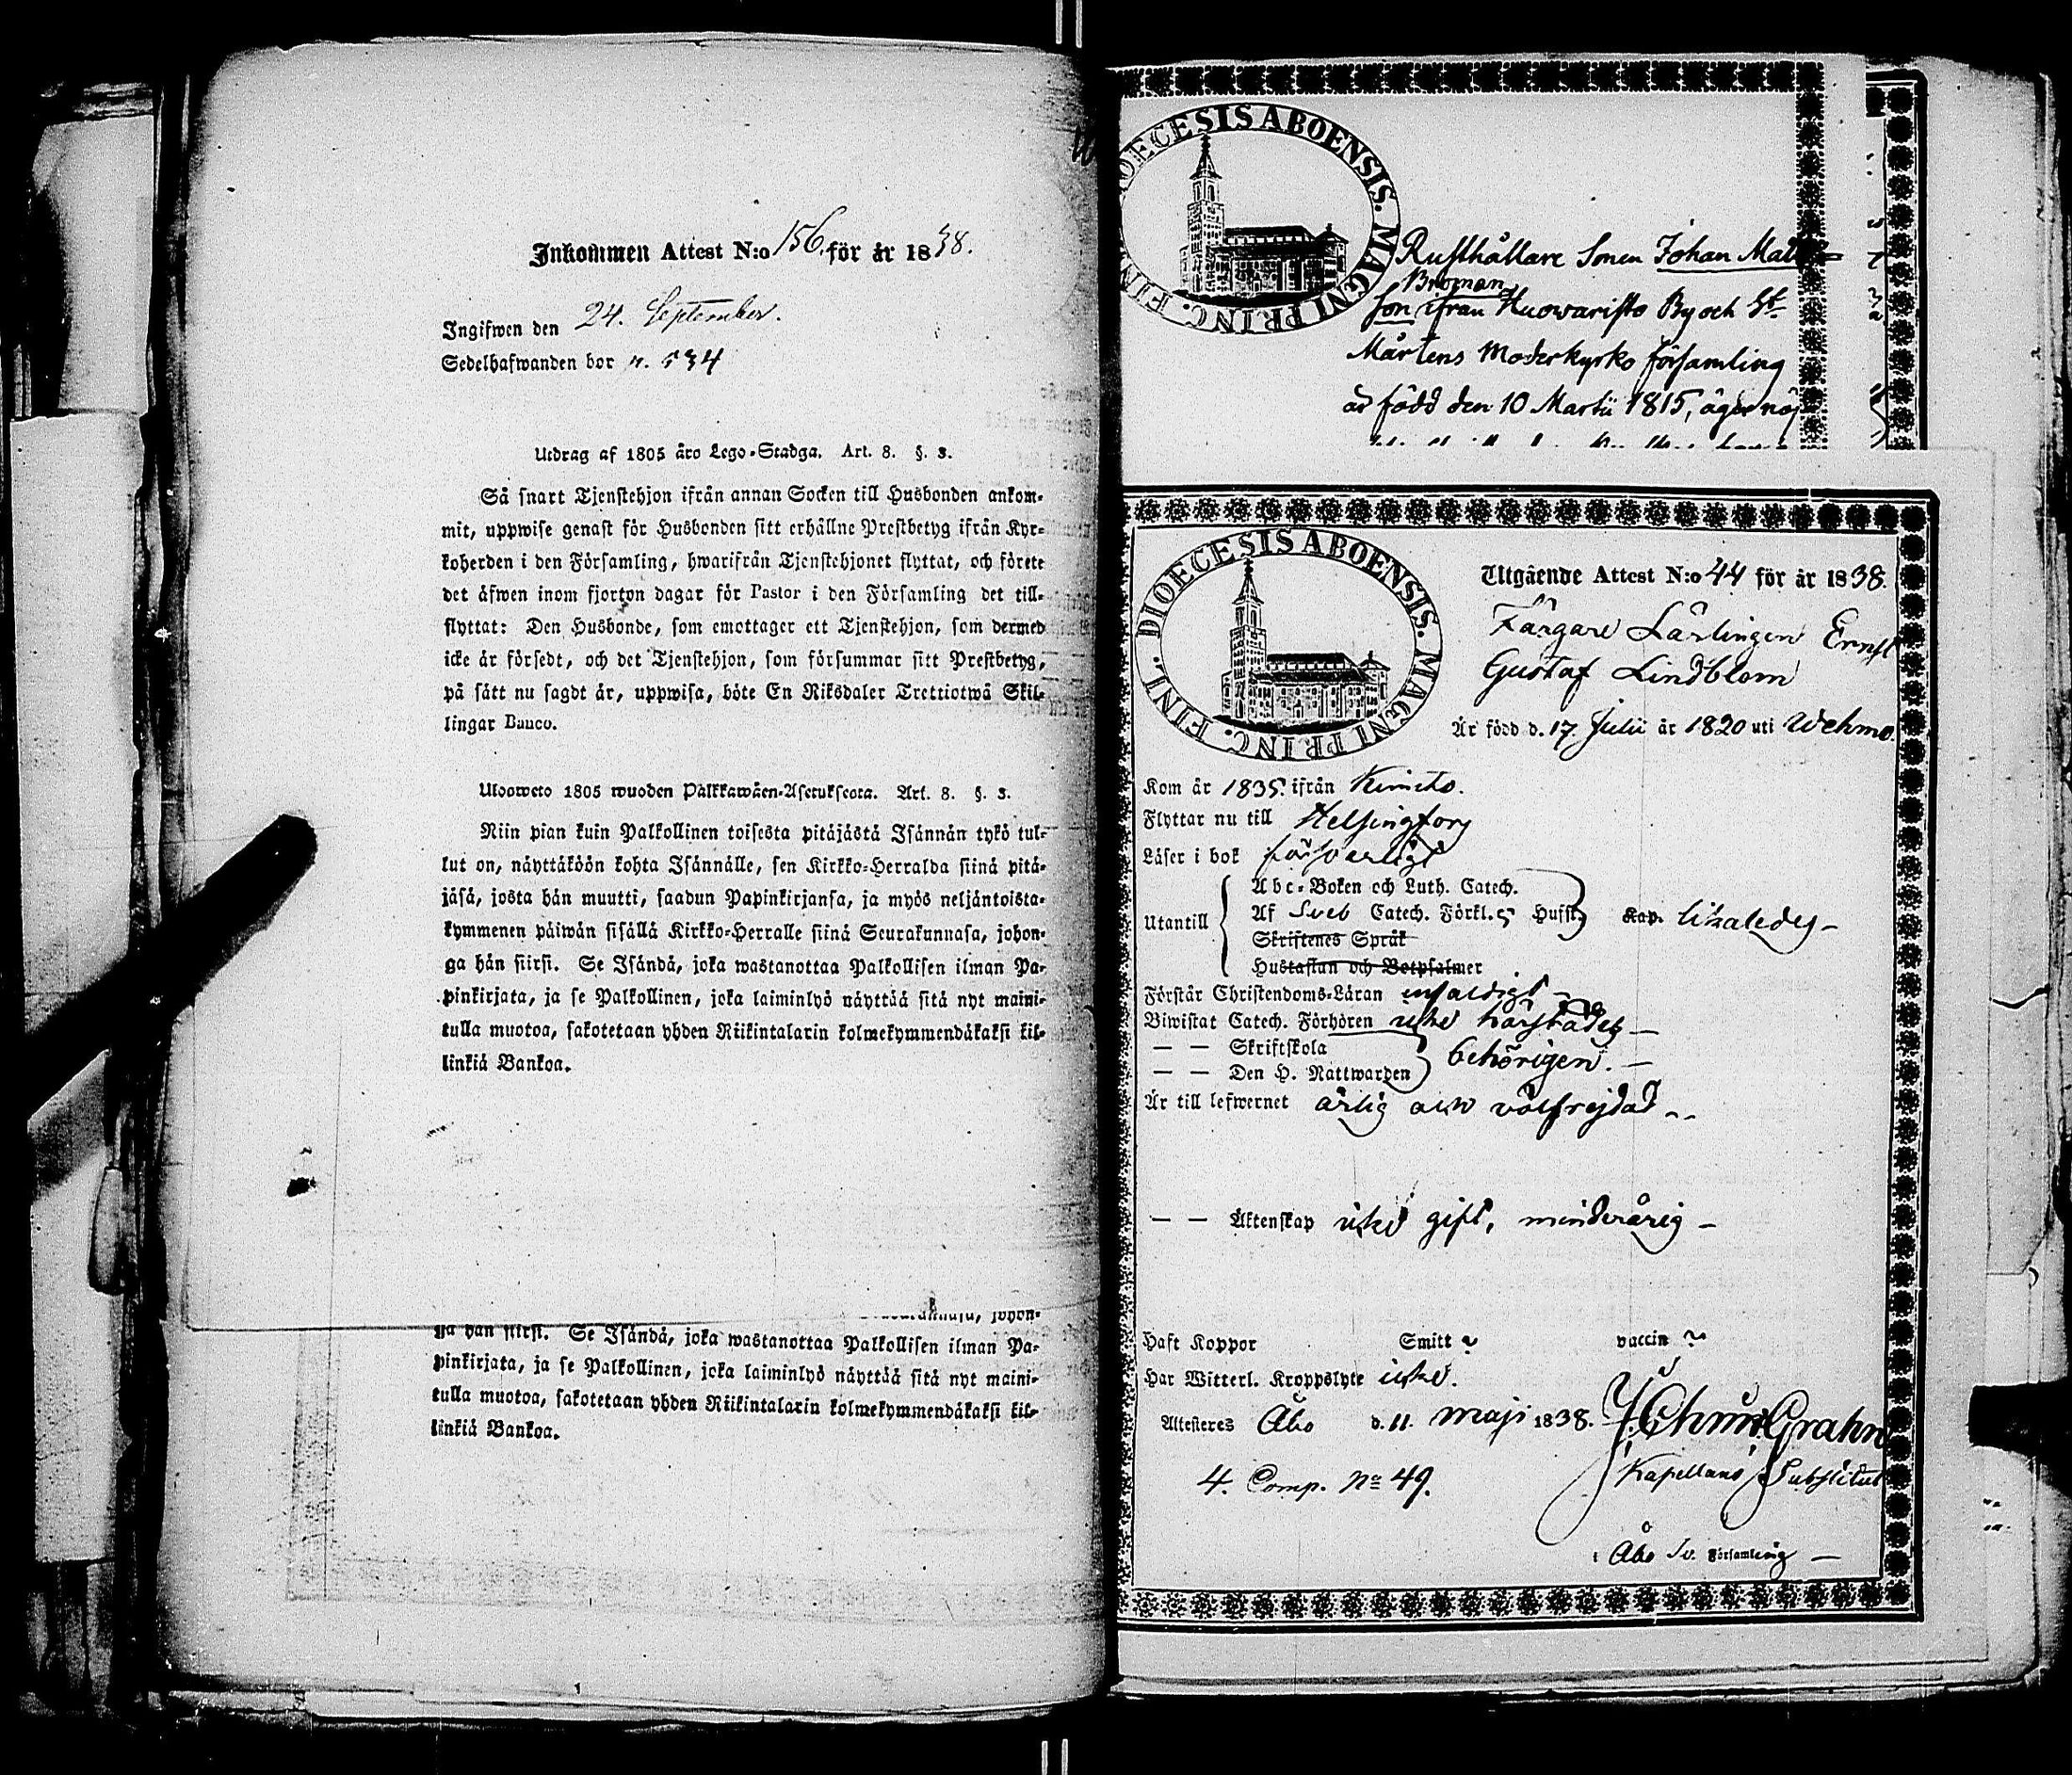 Inkommen Attest N:o 156. för år 1838.
Ingifwen den 24. September.
Sedelhafwanden bor n. 534
Utdrag af 1805 års Lego-Stadga. Art. 8. §. 3.
Så snart Tjenstehjon ifrån annan Socken till Husbonden ankom-
mit, uppwise genast för Husbonden sitt erhållne Prestbetyg ifrån Kyr-
koherden i den Församling, hwarifrån Tjenstehjonet flyttat, och förete
det äfwen inom fjorton dagar för Pastor i den Församling det till-
flyttat: Den Husbonde, som emottager ett Tjenstehjon, som dermed
icke är försedt, och det Tjenstehjon, som försummar sitt Prestbetyg,
på sätt nu sagdt är, uppwisa, böte En Riksdaler Trettiotwå Skil-
lingar Banco.
Ulosweto 1805 wuoden Palkkawäen-Asetuksesta. Art. 8. §. 3.
Niin pian kuin Palkollinen toisesta pitäjästä Isännän tykö tul-
lut on, näyttäköön kohta Isännälle, sen Kirkko-Herralda siinä pitä-
jäsä, josta hän muutti, saadun Papinkirjansa, ja myös neljäntoista-
kymmenen päiwän sisällä Kirkko-Herralle siinä Seurakunnasa, johon-
ga hän siirsi. Se Isändä, joka wastanottaa Palkollisen ilman Pa-
pinkirjata, ja se Palkollinen, joka laiminlyö näyttää sitä nyt maini-
tulla muotoa, sakotetaan yhden Riikintalarin kolmekymmendäkaksi kil-
linkiä Bankoa.
johon-
ga hän siirsi. Se Isändä, joka wastanottaa Palkollisen ilman Pa-
pinkirjata, ja se Palkollinen, joka laiminlyö näyttää sitä nyt maini-
tulla muotoa, sakotetaan yhden Riikintalarin kolmekymmendäkaksi kil-
linkiä Bankoa.
DIOECESIS ABOENSIS. MAGNI PRINC. FIN
Rusthållare Sonen Johan Mat
Broman
son ifrån Huowaristo By och St
Mårtens Moderkyrko församling
är född den 10 Martii 1815, äger nöj
DIOECESIS ABOENSIS. MAGNI PRINC. FINL.
Utgående Attest N:o 44 för år 1838.
Färgare Lärlingen Ernst
Gustaf Lindblom
Är född d. 17 Julii år 1820 uti Wehmo
Kom år 1835. ifrån Kimito.
Flyttar nu till Helsingfors
Läser i bok försvarligt
Utantill
Abc-Boken och Luth. Catech.
Af Sveb Catech. Förkl. 5 Hufst. Kap. likaledes
Skriftenes Språk
Hustaflan och Botpsalmer
Förstår Christendoms-Läran enfaldigt
Biwistat Catech. Förhören icke härstädes
— — Skriftskola
— — Den H. Nattwarden behörigen.
Är till lefwernet ärlig och välfrejdad
— — Äktenskap icke gift, minderårig
Haft Koppor Smitt vaccin
Har Witterl. Kroppslyte icke.
Attesteras Åbo d. 11. maji 1838. Grahn
Kapellans Substitut
4. Comp. No 49.
i Åbo Sv. Församling